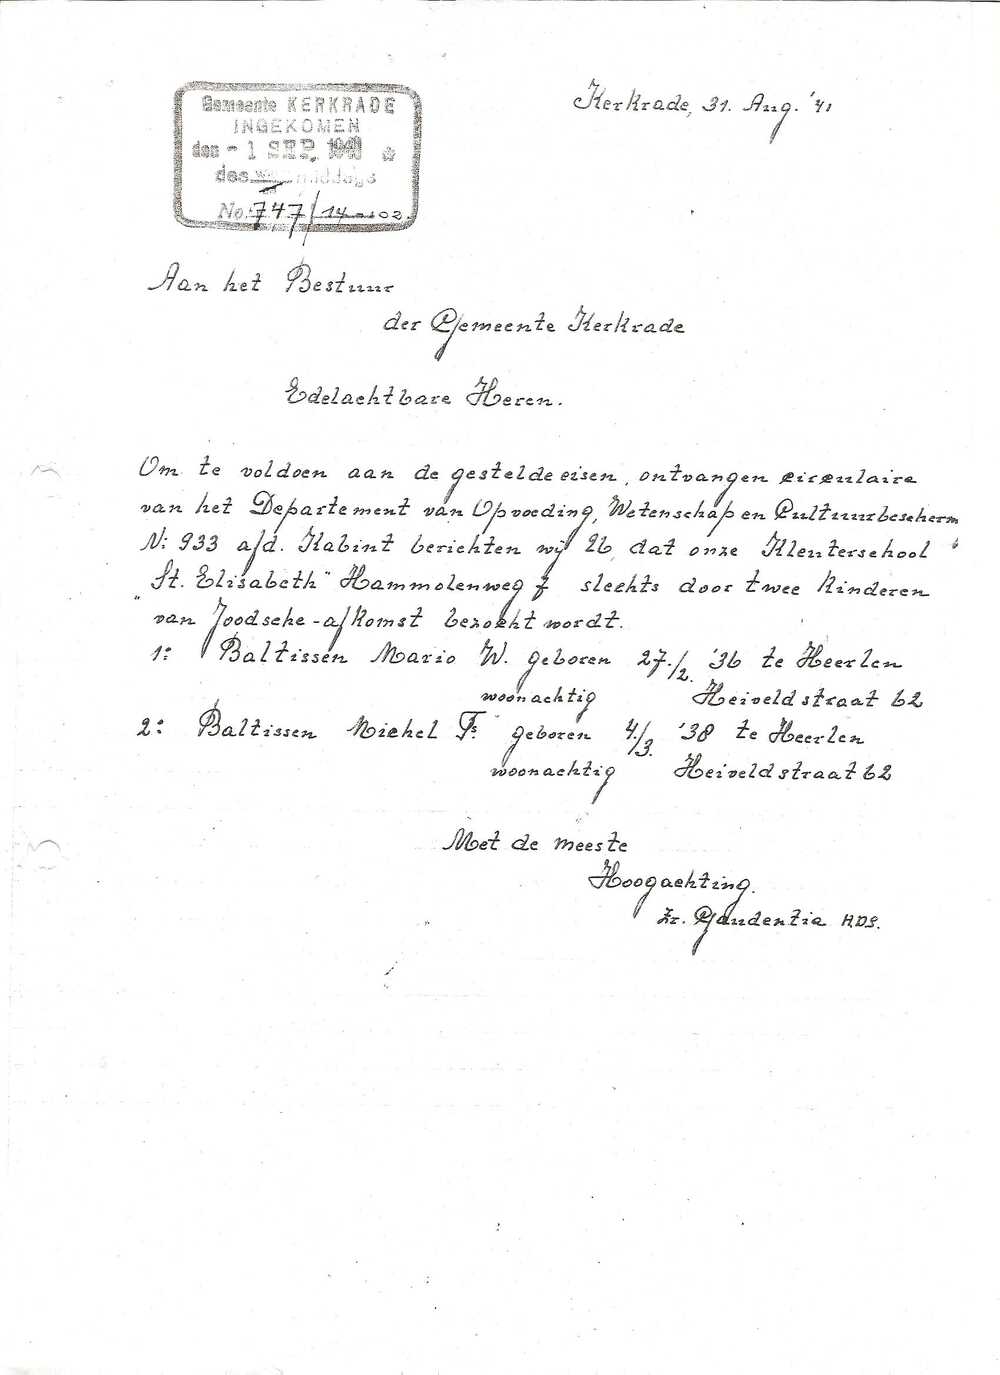 Gemeente KERKRADE
INGEKOMEN
den - 1 SEP. 1941
des middags
No. 747/14-102.
Kerkrade, 31. Aug. '41
Aan het Bestuur
der Gemeente Kerkrade
Edelachtbare Heren.
Om te voldoen aan de gestelde eisen, ontvangen circulaire
van het Departement van Opvoeding, Wetenschap en Cultuurbescherm
N: 933 a/d. Kabint berichten wij U, dat onze Kleuterschool
"St. Elisabeth" Hammolenweg 7 slechts door twee Kinderen
van Joodsche-afkomst bezocht wordt.
1: Baltissen Mario W. geboren 27./2. '36 te Heerlen
woonachtig Heiveldstraat 62
2: Baltissen Michel Fs. geboren 4./3. '38 te Heerlen
woonachtig Heiveldstraat 62
Met de meeste
Hoogachting.
Zr. Gaudentia H.D.S.